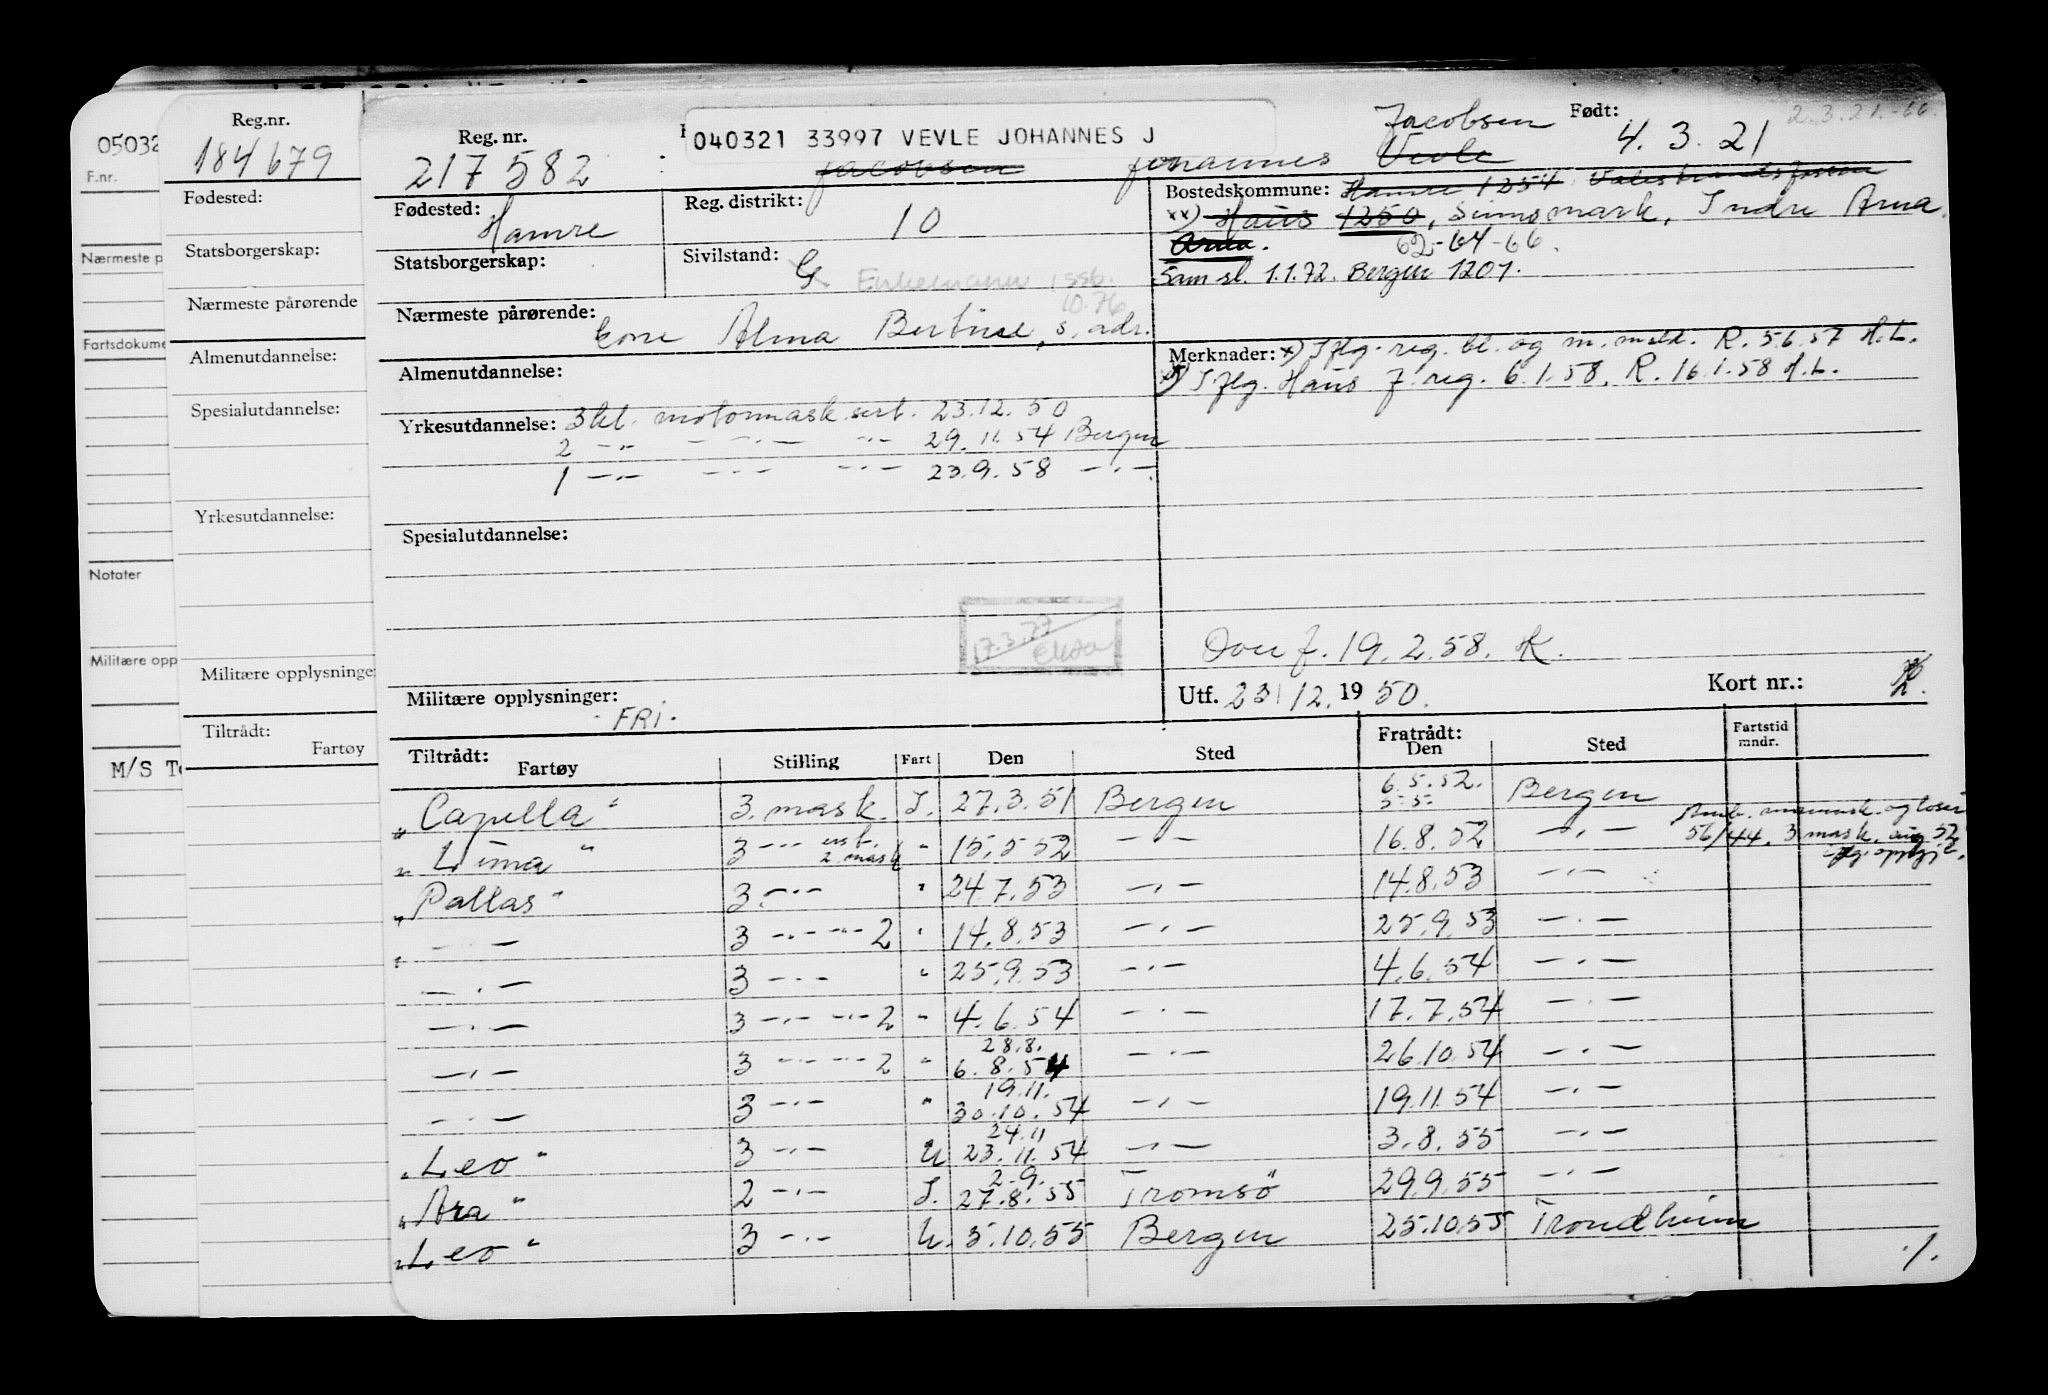 05032
F.nr.
Nærmeste p
Fartsdokume
Notater
Militære opp
M/S To
Reg.nr.
184679
Fødested:
Statsborgerskap:
Nærmeste pårørende
Almenutdannelse:
Spesialutdannelse:
Yrkesutdannelse:
Militære opplysninge
Tiltrådt:
Fartøy
040321 33997 VEVLE JOHANNES J
Reg. nr. 217582
Jacobsen Johannes Vevle Jacobsen
Født: 4.3.21 2.3.21.-66.
Fødested: Hamre
Reg. distrikt: 10
Bostedskommune: Hamre 1254 Valestrandsfossen
xx) Haus 1250, Indre Arna.
Arna. 62-64-66.
Sam sl. 1.1.72. Bergen 1201.
Statsborgerskap:
Sivilstand: G Enkemann
10.76
Nærmeste pårørende: kone Alma Bertine, s. adr.
Merknader: x) Iflg. reg. bl. og m. meld. R. 5.6.57 H.L.
xx) Iflg. Haus f. reg. 6.1.58. R. 16.1.58 H.L.
Almenutdannelse:
Yrkesutdannelse: 3kl. motormask sert. 23.12.50
2 -"- -"- -"- 29.11.54 Bergen
1 -"- -"- -"- 23.9.58 -"-
Spesialutdannelse:
17.3.77
19.2.58. K.
Militære opplysninger: FRI.
Utf. 23/12. 1950.
Kort nr.: 2.
Tiltrådt: Fartøy Stilling Fart Den Sted Fratrådt: Den Sted Fartstid mndr.
"Capella" 3. mask. I. 27.3.51 Bergen 6.5.52. 5-5- Bergen
"Lima" 3 -"- 2. mask " 15.5.52 -"- 16.8.52 -"- 56/44. 3 mask. aug 52
"Pallas" 3 -"- " 24.7.53 -"- 14.8.53 -"-
" -"- 3 -"- -"- 2 " 14.8.53 -"- 25.9.53 -"-
" -"- 3 -"- " 25.9.53 -"- 4.6.54 -"-
-"- 3 -"- -"- 2 " 4.6.54 -"- 17.7.54 -"-
-"- 3 -"- -"- 2 " 28.8. 6.8.54 -"- 26.10.54 -"-
-"- 3 -"- " 19.11. 30.10.54 -"- 19.11.54 -"-
"Leo" 3 -"- U 24.11 23.11.54 -"- 3.8.55 -"-
"Ara" 2 -"- I. 2.9. 27.8.55 Tromsö 29.9.55 -"-
"Leo" 3 -"- U. 5.10.55 Bergen 25.10.55 Trondheim
./.